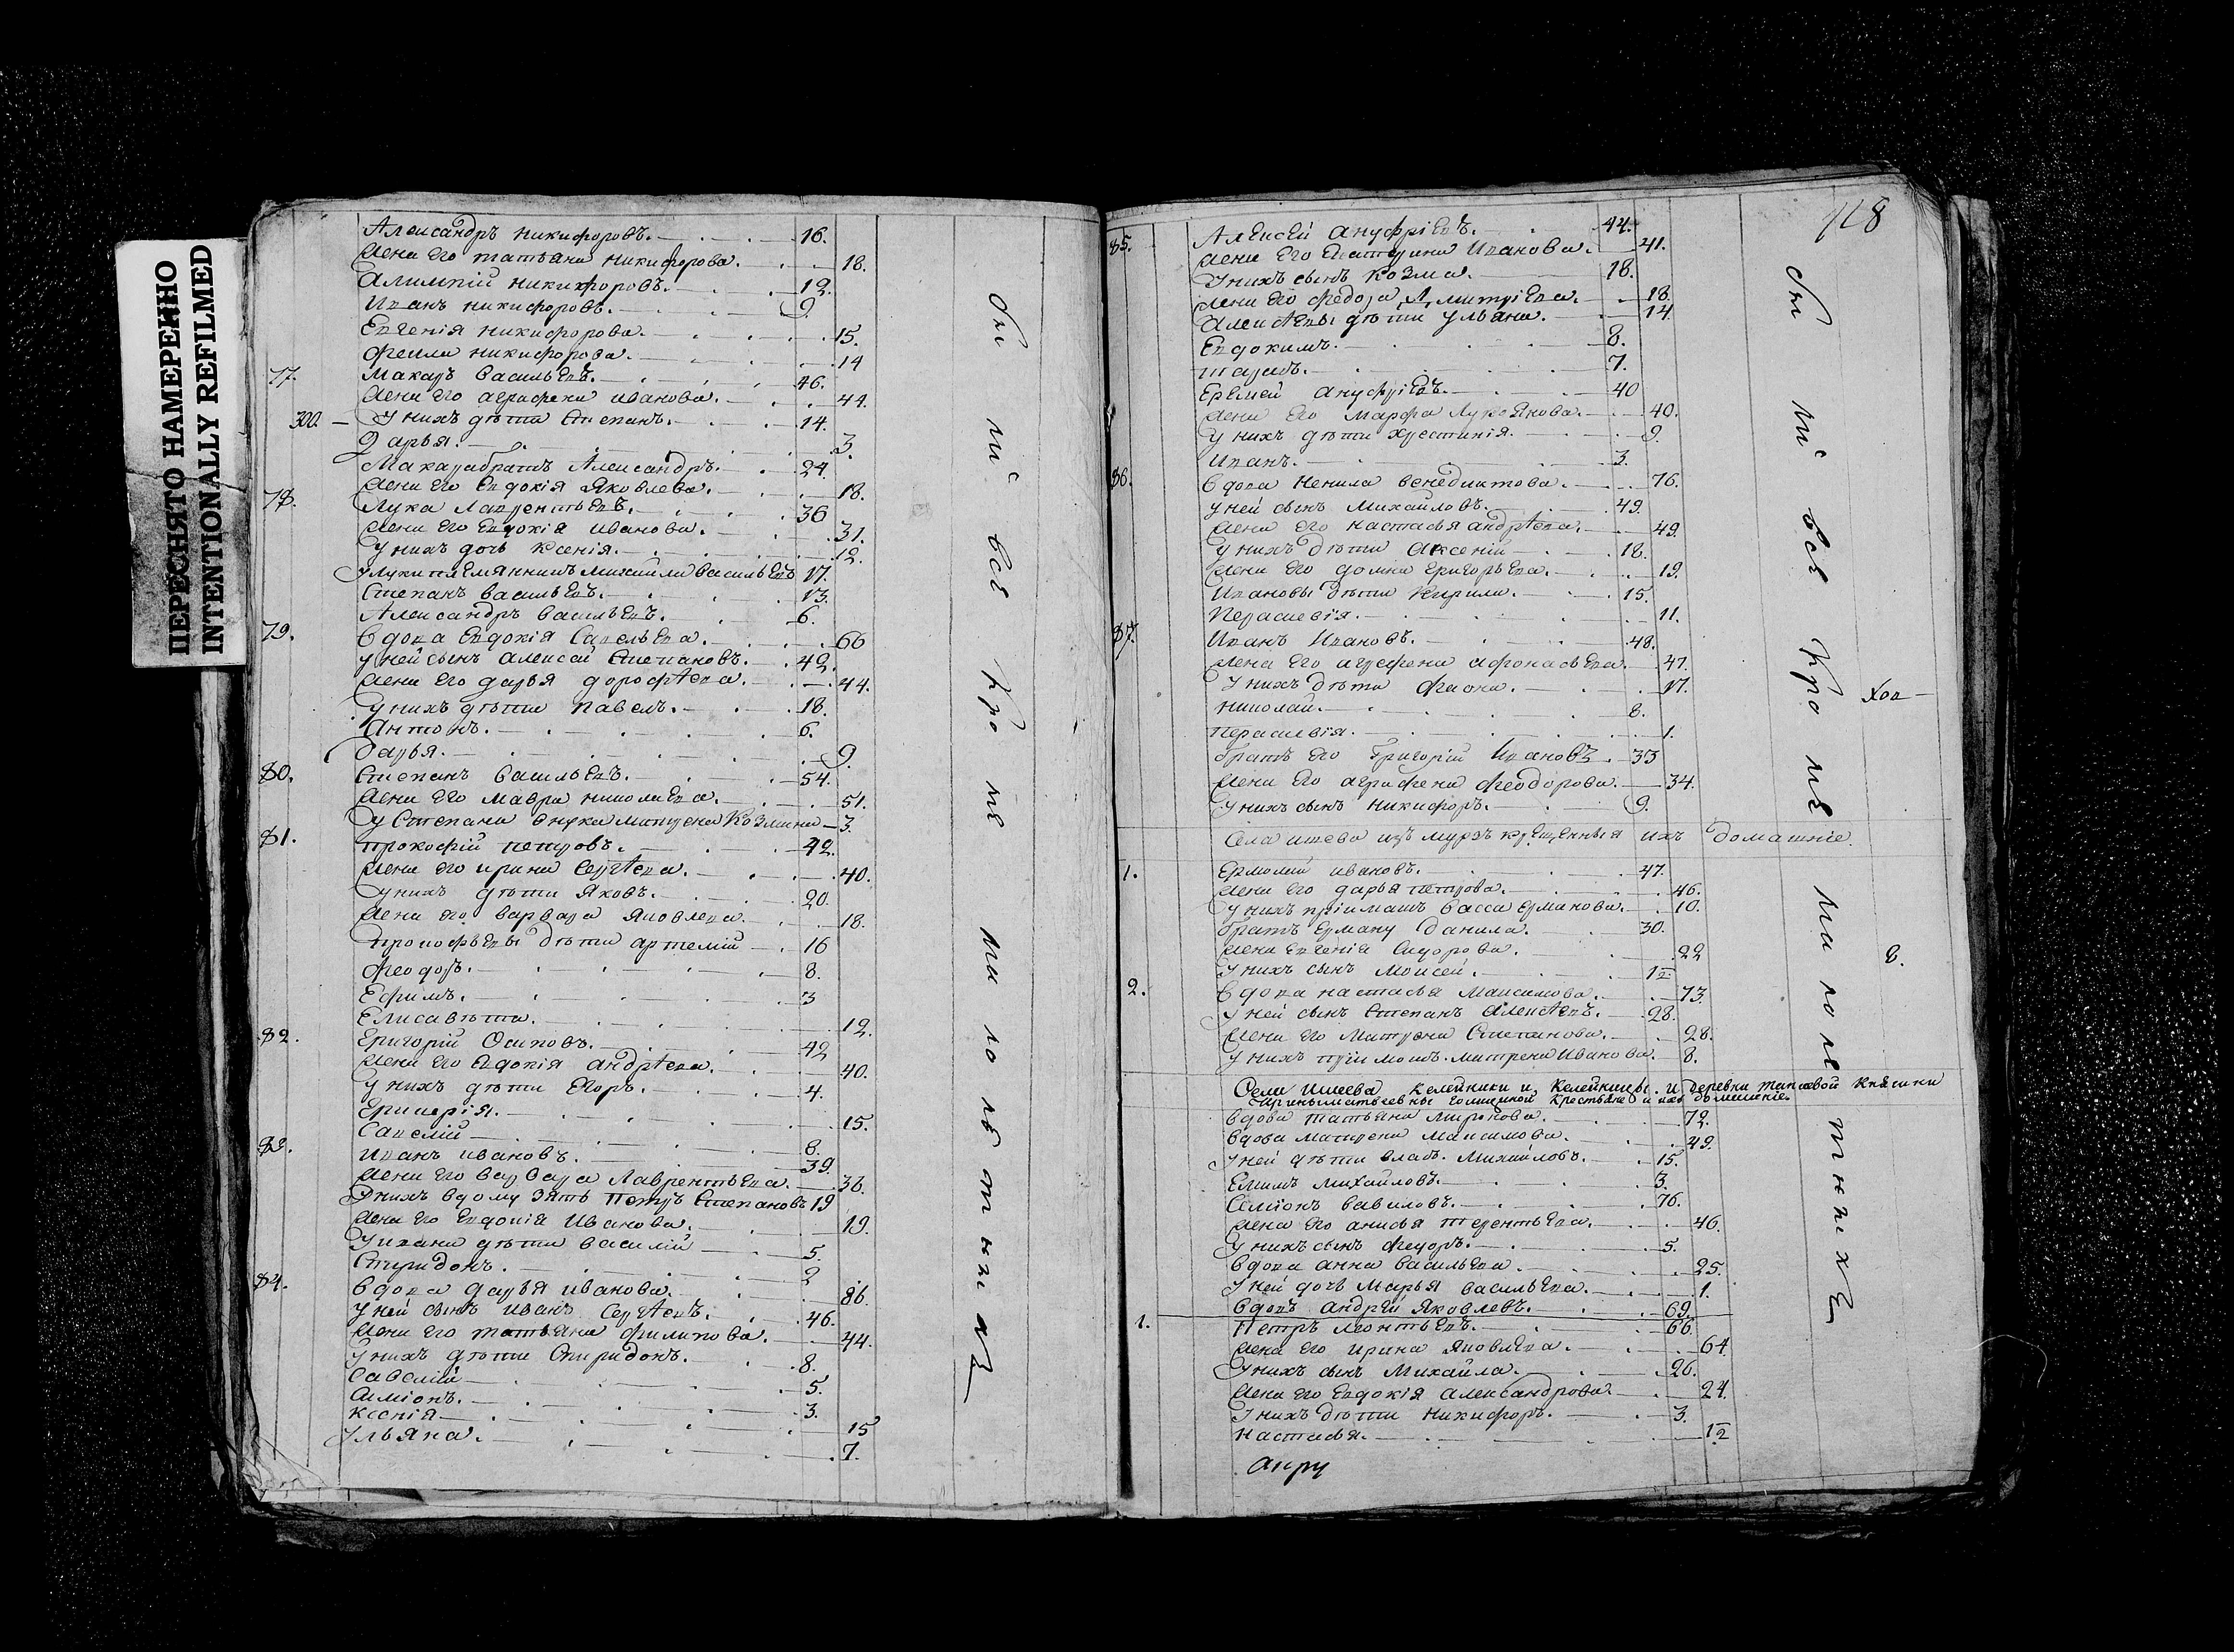 ПЕРЕСНЯТО НАМЕРЕННО
INTENTIONALLY REFILMED
Александръ никифоровъ. 16.
жена его татьяна никифорова. 18.
Алимпій никифоровъ. 12.
Иванъ никифоровъ. 9
Евгенія никифорова. 15.
Фекла никифорова. 14
77. Макаръ васильевъ. 46.
жена его аграфена иванова. 44.
300. У нихъ дѣти Степанъ. 14.
Дарья. 3.
Макара братъ Александръ. 24
жена его Евдокія Яковлева. 18.
78. Лука Лаврентьевъ. 36
жена его Евдокія иванова. 31.
У нихъ дочь ксенія. 12.
У луки племянникъ михайла васильевъ 17.
Степанъ васильевъ. 13.
Александръ васильевъ. 6.
79. вдова Евдокія Савельева. 66
У ней сынъ алексей Степановъ. 42.
жена его дарья дорофѣева. 44.
У нихъ дѣти павелъ. 18.
Антонъ. 6.
Дарья. 9.
80. Степанъ васильевъ. 54.
жена его мавра николаева. 51.
У Степана внука матрена Козмина 3.
81. прокофій петровъ. 42.
жена его ирина Сергѣева. 40.
У нихъ дѣти Яковъ. 20.
жена его варвара Яковлева. 18.
прокофьевы дѣти артемій 16
феодоръ. 8.
Ефимъ. 3
Елисавѣта. 12.
82. Григорій Осиповъ. 42
жена его Евдокія андрѣева. 40.
У нихъ дѣти Егоръ. 4.
15.
Савелій 8.
83. иванъ ивановъ. 39.
жена его варвара Лаврентьева. 36.
У нихъ вдому зять Петръ Степановъ 19
жена его Евдокія иванова. 19.
У ивана дѣти василій 5.
Спиридонъ. 2
84. вдова дарья иванова. 86.
У ней сынъ иванъ Сергѣевъ. 46.
жена его татьяна филипова. 44.
У нихъ дѣти Спиридонъ. 8.
Савелій 5.
Симіонъ. 3.
ксенія 15
Ульяна. 7.
бы ли все кро ме ма ло лѣ тнихъ
118
85. Алексей ануфріевъ. 44.
жена его Екатерина иванова. 41.
У нихъ сынъ козма. 18.
жена его федора Дмитріева. 18.
Алексѣевы дѣти ульяна. 14.
Евдокимъ. 8.
тарасъ. 7.
Еремей ануфріевъ. 40
жена его марфа Лукоянова. 40.
У нихъ дѣти хрестинія. 9.
иванъ. 3.
86. вдова ненила венедиктова. 76.
У ней сынъ михайловъ. 49.
жена его настасья андрѣева. 49.
У нихъ дѣти аксеній 18.
жена его домна григорьева. 19.
Ивановы дѣти кирила. 15.
Перасковія. 11.
87. Иванъ Ивановъ. 48.
жена его агрефена афонасьева. 47.
У нихъ дѣти 17.
николай. 8.
перасковія. 1.
братъ его Григорій Ивановъ 33
жена его аграфена феодорова. 34.
У нихъ сынъ никифоръ. 9.
Села ишева изъ мурзъ крещенныя ихъ домашніе.
1. Ермолай ивановъ. 47.
жена его дарья петрова. 46.
У нихъ пріимашъ васса ерманова. 10.
братъ ерману данила. 30.
жена Евгенія Сидорова. 22
У нихъ сынъ моисей. 1/2
2. вдова настасья максимова. 73.
У ней сынъ Степанъ Алексѣевъ. 28.
жена его матрена Степанова. 28.
У нихъ пріимошъ матрена иванова. 8.
Села ишеева келейники и келейницы и деревни княжны
Ирины матвеевны голициной крестьяне и ихъ домашніе
вдова татьяна миронова. 72.
вдова матрена максимова. 49.
У ней дѣти власъ михайловъ. 15.
михайловъ. 3.
Симіонъ вавиловъ. 76.
жена его анисья терентьева. 46.
У нихъ сынъ федоръ. 5.
вдова анна васильева. 25.
У ней дочь марья васильева. 1.
вдовъ андрей Яковлевъ. 69.
1. Петръ леонтьевъ. 66.
жена его ирина Яковлева. 64.
У нихъ сынъ михайла. 26.
жена его Евдокія александрова. 24.
У нихъ дѣти никифоръ. 3.
настасья. 1/2
бы ли все кро ме ма ло лѣ тнихъ
8.